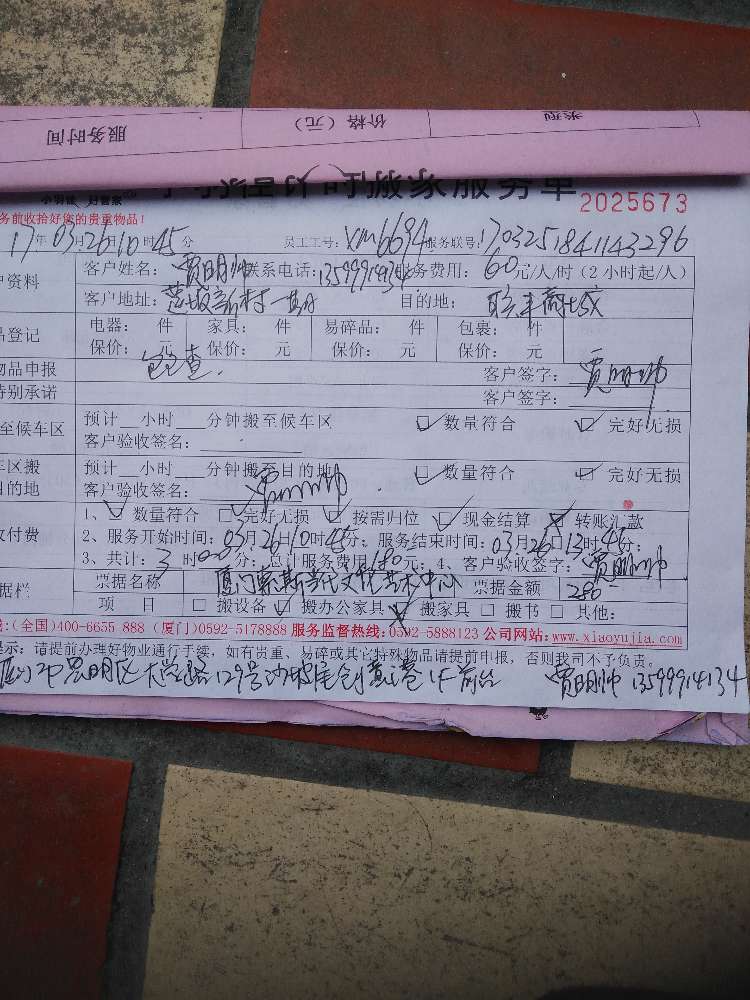 服务时间 价格（元） 类型
计时搬家服务单 2025673
务前收拾好您的贵重物品！
17年03月26日10时45分 员工工号：XM6694 服务联号：1703251841143296
户资料 客户姓名：贾明帅 联系电话：13599914134 服务费用：60元/人/时（2小时起/人）
客户地址：莲坂新村 目的地：
品登记 电器： 件 家具： 件 易碎品： 件 包裹： 件
保价： 元 保价： 元 保价： 元 保价： 元
物品申报 客户签字：贾明帅
特别承诺 客户签字：
至候车区 预计__小时___分钟搬至候车区 ☑ 数量符合 ☑ 完好无损
客户验收签名：
车区搬 预计__小时___分钟搬至目的地 ☑ 数量符合 ☑ 完好无损
目的地 客户验收签名：贾明帅
1、☑ 数量符合 □ 完好无损 ☑ 按需归位 ☑ 现金结算 ☒ 转账汇款
收付费 2、服务开始时间：03月26日10时45分；服务结束时间：03月26日13时45分；
3、共计：3时00分；总计服务费用180元；4、客户验收签字：贾明帅
据栏 票据名称 票据金额 280
项 目 □ 搬设备 ☑ 搬办公家具 ☒ 搬家具 □ 搬书 □ 其他：
：（全国）400-6655 888（厦门）0592-5178888 服务监督热线：0592-5888123 公司网站：www.xiaoyujia.com
提示：请提前办理好物业通行手续，如有贵重、易碎或其它特殊物品请提前申报，否则我司不予负责。
厦门市思明区大学路129号沙坡尾 1F前台 贾明帅 13599914134